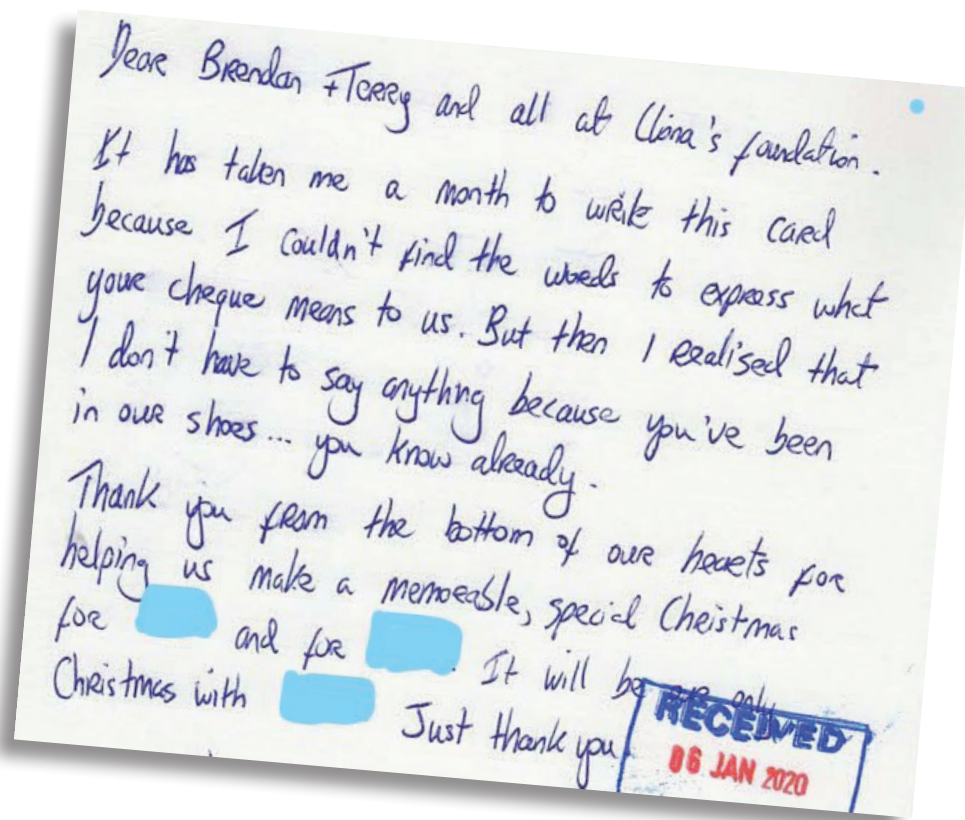 Dear Brendan + Terry and all at Clíona's foundation.
It has taken me a month to write this card
because I couldn't find the words to express what
your cheque means to us. But then I realised that
I don't have to say anything because you've been
in our shoes... you know already.
Thank you from the bottom of our hearts for
helping us make a memorable, special Christmas
for and for . It will be our only
Christmas with Just thank you.
RECEIVED
06 JAN 2020